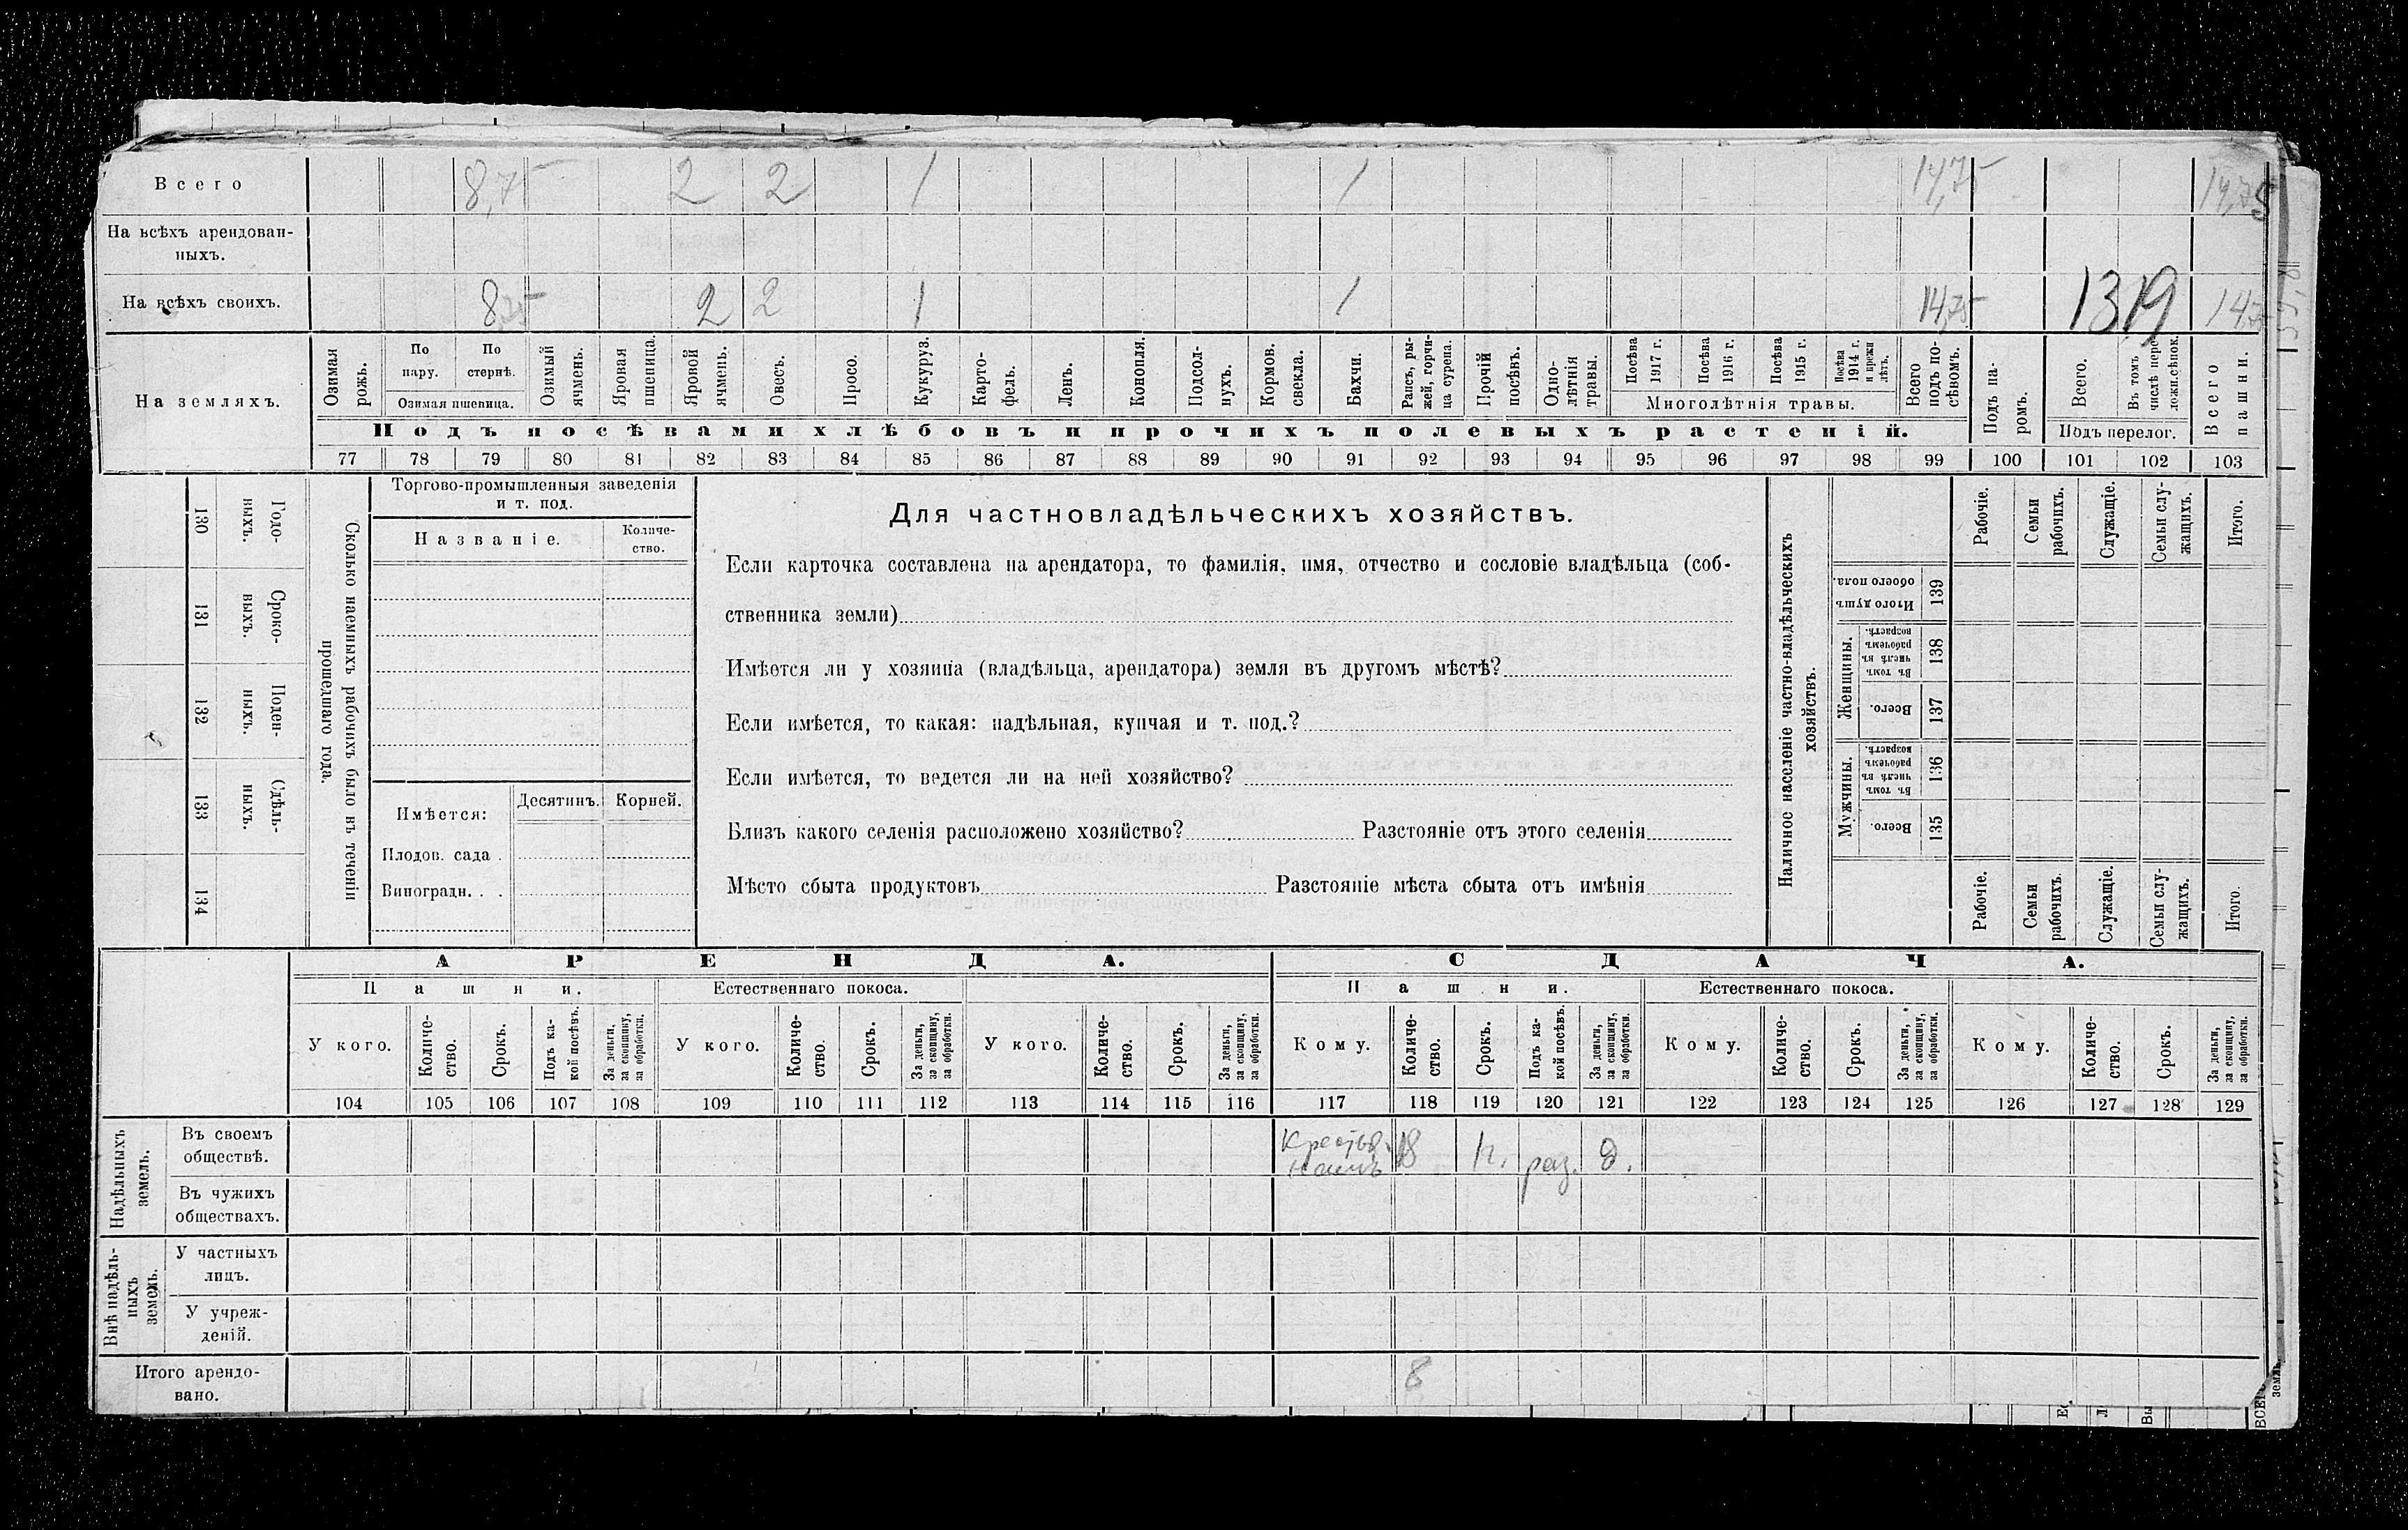 Всего 8,75 2 2 1 1 14,75 14,75
На всѣхъ арендован-
ныхъ.
На всѣхъ своихъ. 8,75 2 2 1 1 14,75 1319 14,75
На земляхъ.
Озимая
рожь.
По
пару.
По
стернѣ.
Озимая пшеница.
Озимый
ячмень.
Яровая
пшеница.
Яровой
ячмень.
Овесъ.
Просо.
Кукуруз.
Карто-
фель.
Ленъ.
Конопля.
Подсол-
нухъ.
Кормов.
свекла.
Бахчи.
Рапсъ, ры-
жей, горчи-
ца сурепа.
Прочій
посѣвъ.
Одно-
лѣтнія
травы.
Посѣва
1917 г.
Посѣва
1916 г.
Посѣва
1915 г.
Посѣва
1914 г.
и прежн
лѣтъ.
Многолѣтнія травы.
Всего
подъ по-
сѣвомъ.
Подъ па-
ромъ.
Всего.
Въ томъ
числѣ пере-
ложн.сѣнок.
Подъ перелог.
Всего
пашни.
Подъ посѣвами хлѣбовъ и прочихъ полевыхъ растеній.
77 78 79 80 81 82 83 84 85 86 87 88 89 90 91 92 93 94 95 96 97 98 99 100 101 102 103
Сколько наемныхъ рабочихъ было въ теченіи
прошедшаго года.
Годо-
ныхъ.
130
Сроко-
выхъ.
131
Поден-
ныхъ.
132
Сдѣль-
ныхъ.
133
134
Торгово-промышленныя заведенія
и т. под.
Названіе.
Количе-
ство.
Имѣется:
Десятинъ. Корней.
Плодов. сада .
Виноградн. . .
Для частновладѣльческихъ хозяйствъ.
Если карточка составлена на арендатора, то фамилія, имя, отчество и сословіе владѣльца (соб-
ственника земли)
Имѣется ли у хозяина (владѣльца, арендатора) земля въ другомъ мѣстѣ?
Если имѣется, то какая: надѣльная, купчая и т. под.?
Если имѣется, то ведется ли на ней хозяйство?
Близъ какого селенія расположено хозяйство? Разстояніе отъ этого селенія
Мѣсто сбыта продуктовъ Разстояніе мѣста сбыта отъ имѣнія
Наличное населеніе частно-владѣльческихъ
хозяйствъ.
Рабочіе.
Семьи
рабочихъ.
Служащіе.
Семьи слу-
жащихъ.
Итого.
Итого душъ
обоего пола.
139
Женщины.
Въ томъ
числѣ въ
рабочемъ
возрастѣ.
138
Всего.
137
Мужчины.
Въ томъ
числѣ въ
рабочемъ
возрастѣ.
136
Всего.
135
Рабочіе.
Семьи
рабочихъ.
Служащіе.
Семьи слу-
жащихъ.
Итого.
АРЕНДА. СДАЧА.
Пашни. Естественнаго покоса. Пашни. Естественнаго покоса.
У кого.
Количе-
ство.
Срокъ.
Подъ ка-
кой посѣвъ.
За деньги,
за скопщину,
за обработки.
У кого.
Количе-
ство.
Срокъ.
За деньги,
за скопщину,
за обработки.
У кого.
Количе-
ство.
Срокъ.
За деньги,
за скопщину,
за обработки.
Кому.
Количе-
ство.
Срокъ.
Подъ ка-
кой посѣвъ.
За деньги,
за скопщину,
за обработки.
Кому.
Количе-
ство.
Срокъ.
За деньги,
за скопщину,
за обработки.
Кому.
Количе-
ство.
Срокъ.
За деньги,
за скопщину,
за обработки.
104 105 106 107 108 109 110 111 112 113 114 115 116 117 118 119 120 121 122 123 124 125 126 127 128 129
Надѣльныхъ
земель.
Въ своемъ
обществѣ.
Крестья-
намъ
раз. д.
Въ чужихъ
обществахъ.
Внѣ надѣль-
ныхъ
земель.
У частныхъ
лицъ.
У учреж-
деній.
Итого арендо-
вано.
8